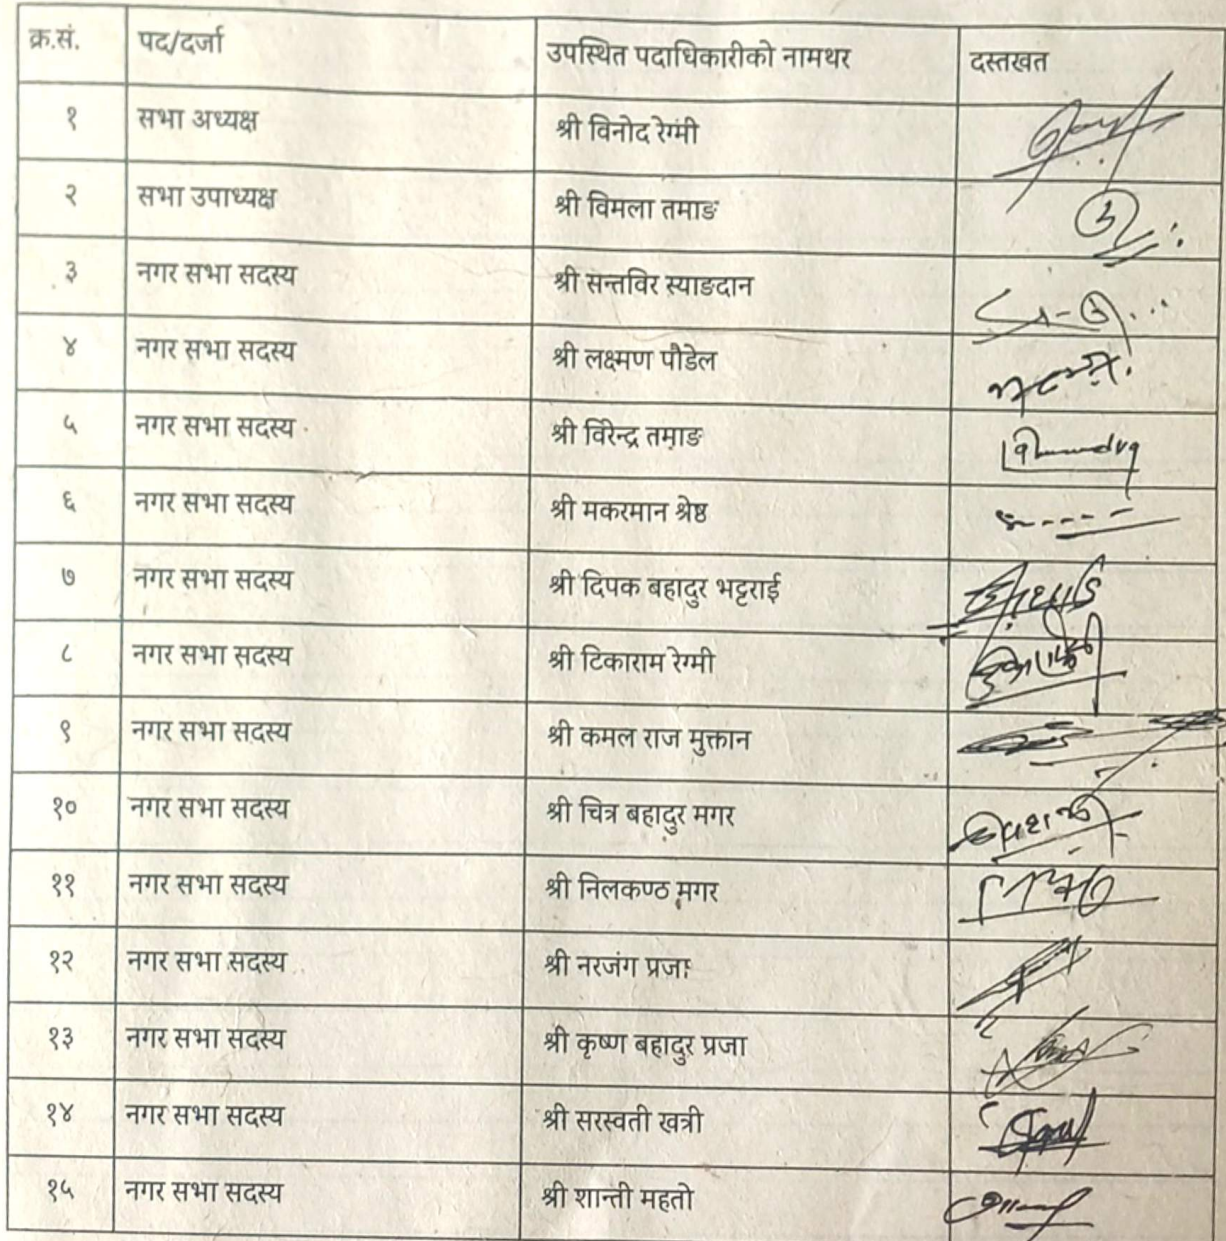 क्र.सं. पद/दर्जा उपस्थित पदाधिकारीको नामथर दस्तखत
१ सभा अध्यक्ष श्री विनोद रेग्मी
२ सभा उपाध्यक्ष श्री विमला तमाङ
३ नगर सभा सदस्य श्री सन्तविर स्याङदान
४ नगर सभा सदस्य श्री लक्ष्मण पौडेल
५ नगर सभा सदस्य श्री विरेन्द्र तमाङ
६ नगर सभा सदस्य श्री मकरमान श्रेष्ठ
७ नगर सभा सदस्य श्री दिपक बहादुर भट्टराई
८ नगर सभा सदस्य श्री टिकाराम रेग्मी
९ नगर सभा सदस्य श्री कमल राज मुक्तान
१० नगर सभा सदस्य श्री चित्र बहादुर मगर
११ नगर सभा सदस्य श्री निलकण्ठ मगर
१२ नगर सभा सदस्य श्री नरजंग प्रजा
१३ नगर सभा सदस्य श्री कृष्ण बहादुर प्रजा
१४ नगर सभा सदस्य श्री सरस्वती खत्री
१५ नगर सभा सदस्य श्री शान्ती महतो